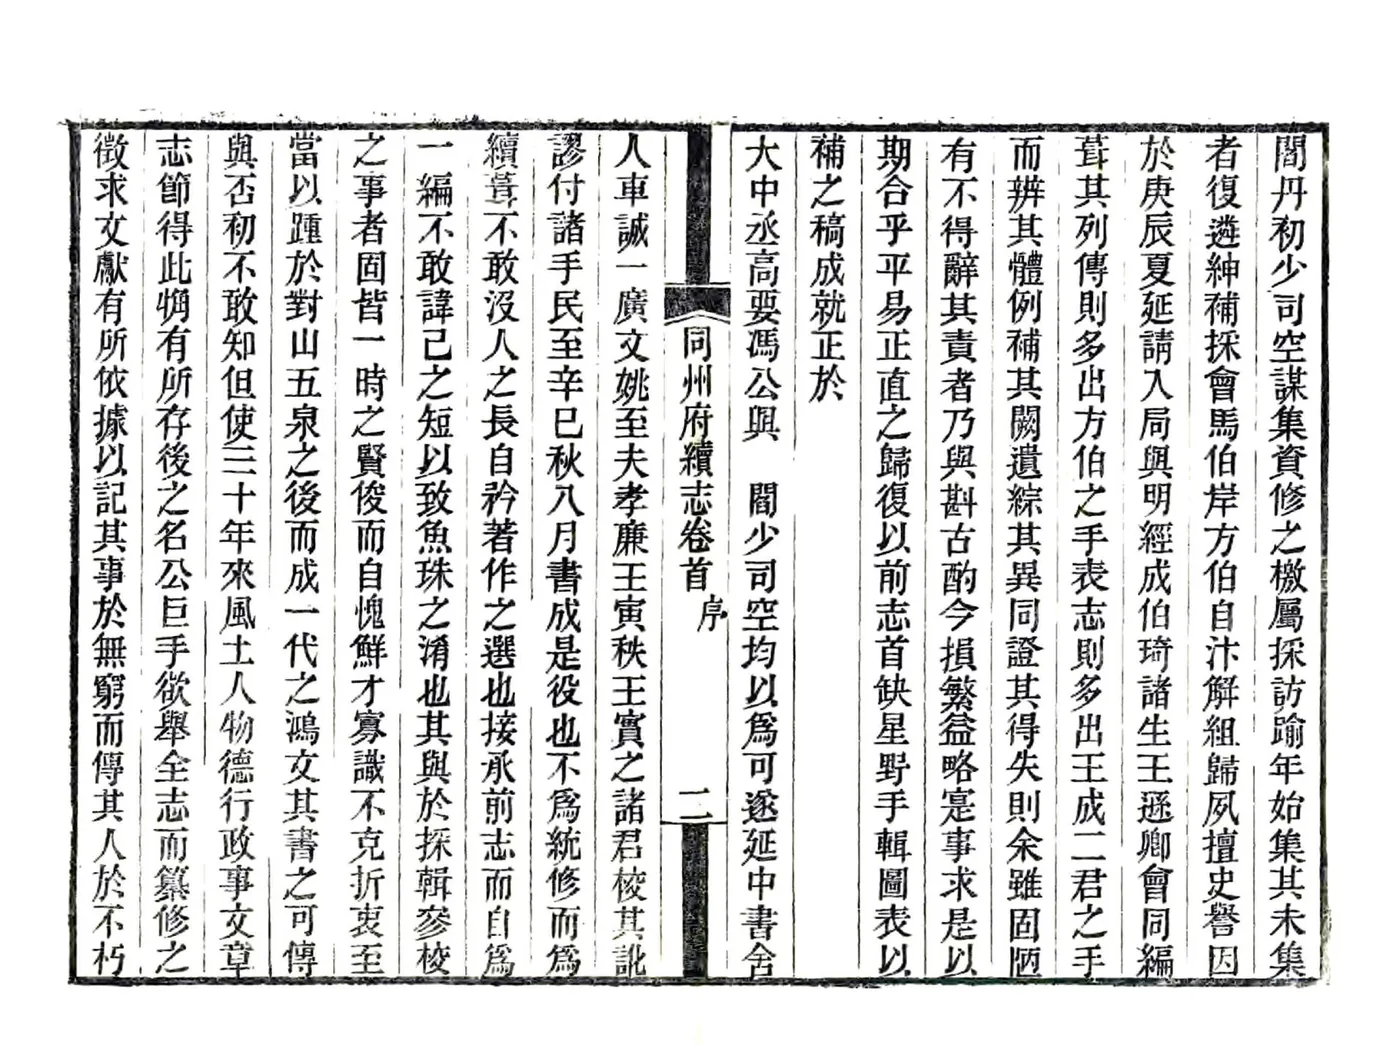 閻丹初少司空謀集資修之檄屬採訪踰年始集其未集
者復遴紳補採會馬伯岸方伯自汴解組歸夙擅史譽因
於庚辰夏延請入局與明經成伯琦諸生王遜卿會同編
葺其列傳則多出方伯之手表志則多出王成二君之手
而辨其體例補其闕遺綜其異同證其得失則余雖固陋
有不得辭其責者乃與斟古酌今損繁益略寔事求是以
期合乎平易正直之歸復以前志首缺星野手輯圖表以
補之稿成就正於
大中丞高要馮公與　閻少司空均以爲可遂延中書舍
同州府續志卷首　序　二
人車誠一廣文姚至夫孝廉王寅秩王實之諸君校其訛
謬付諸手民至辛巳秋八月書成是役也不爲統修而爲
續葺不敢沒人之長自矜著作之選也接承前志而自爲
一編不敢諱己之短以致魚珠之淆也其與於採輯參校
之事者固皆一時之賢俊而自愧鮮才寡識不克折衷至
當以踵於對山五泉之後而成一代之鴻文其書之可傳
與否初不敢知但使三十年來風土人物德行政事文章
志節得此猶有所存後之名公巨手欲舉全志而纂修之
徵求文獻有所依據以記其事於無窮而傳其人於不朽